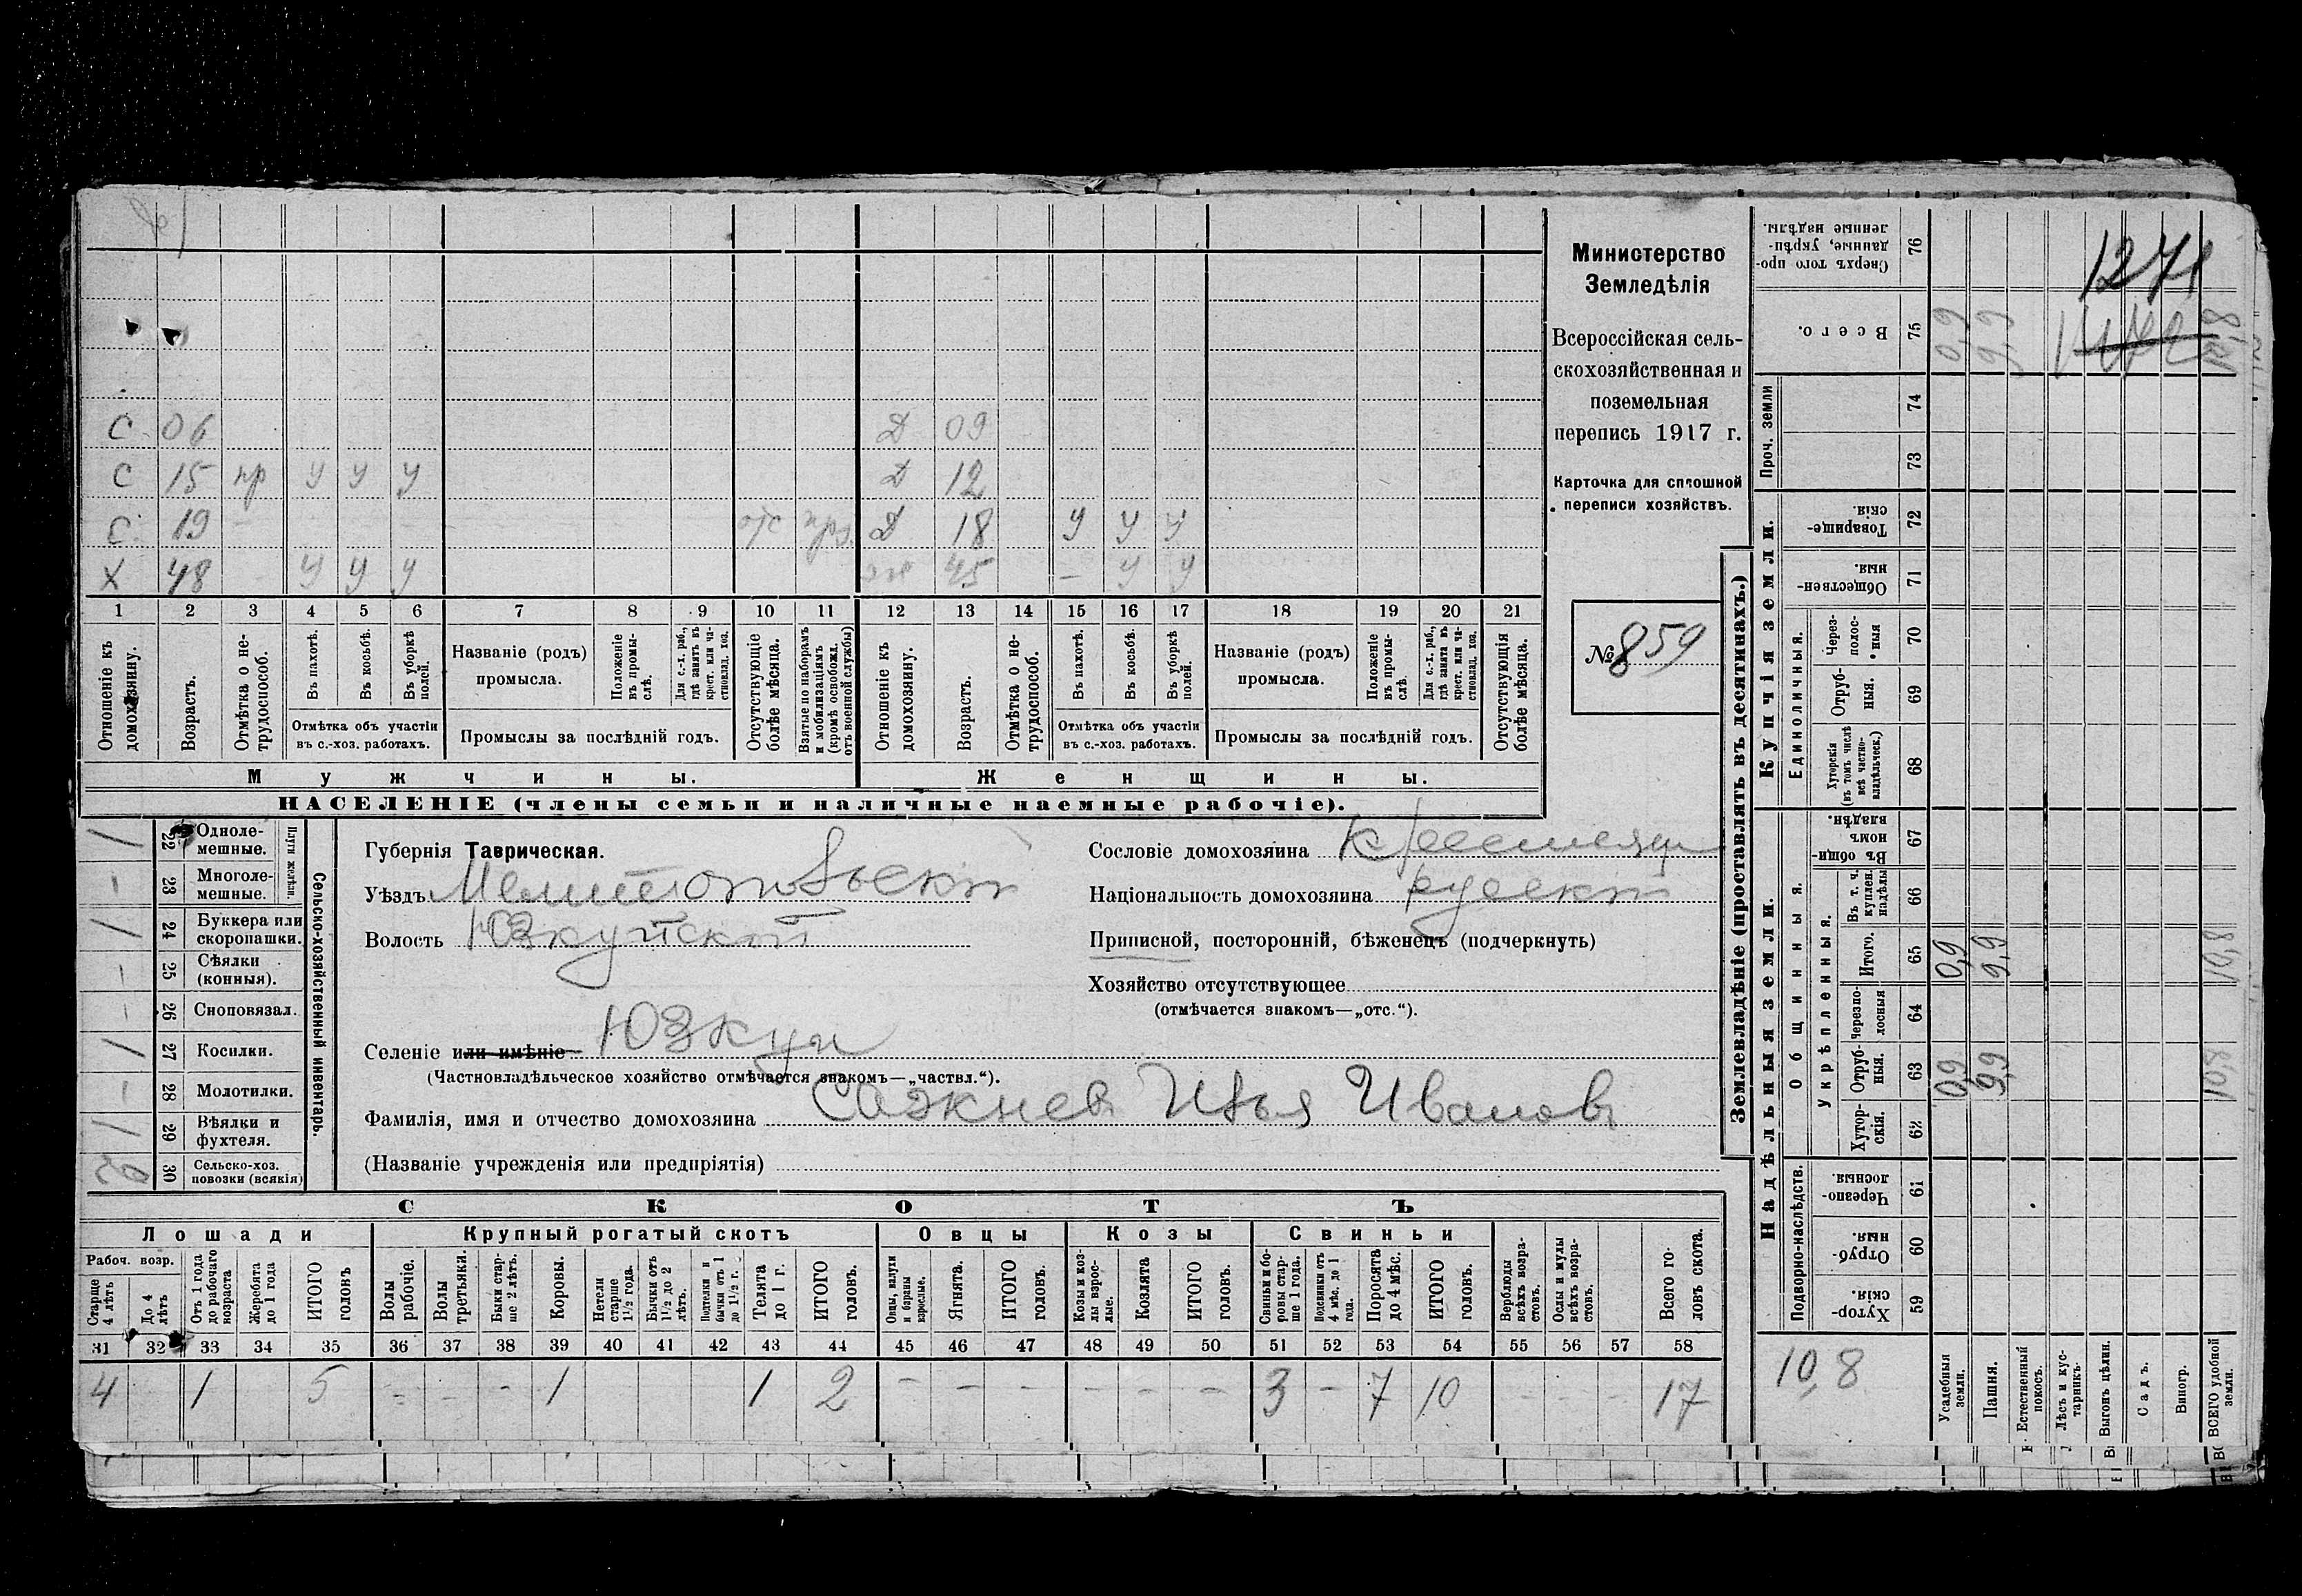 С 06 Д 09
С 15 нр У У У Д 12
С 19 отс Д 18 У У У
Х 48 У У У 45 – У У
1 2 3 4 5 6 7 8 9 10 11 12 13 14 15 16 17 18 19 20 21
Отношеніе къ домохозяину.
Возрастъ.
Отмѣтка о нетрудоспособ.
Въ пахотѣ.
Въ косьбѣ.
Въ уборкѣ полей.
Отмѣтка объ участіи
въ с.-хоз. работахъ.
Названіе (родъ)
промысла.
Положеніе въ промыслѣ.
Для с.-х. раб., гдѣ занятъ въ крест. или частновлад. хоз.
Промыслы за послѣдній годъ.
Отсутствующіе болѣе мѣсяца.
Взятые по наборамъ и мобилизаціямъ (кромѣ освобожд. отъ военной службы)
Отношеніе къ домохозяину.
Возрастъ.
Отмѣтка о нетрудоспособ.
Въ пахотѣ.
Въ косьбѣ.
Въ уборкѣ полей.
Отмѣтка объ участіи
въ с.-хоз. работахъ.
Названіе (родъ)
промысла.
Положеніе въ промыслѣ.
Для с.-х. раб., гдѣ занята въ крест. или частновлад. хоз.
Промыслы за послѣдній годъ.
Отсутствующія болѣе мѣсяца.
Мужчины. Женщины.
НАСЕЛЕНІЕ (члены семьи и наличные наемные рабочіе).
Министерство
Земледѣлія
Всероссійская сель-
скохозяйственная и
поземельная
перепись 1917 г.
Карточка для сплошной
переписи хозяйствъ.
№ 859
Сельско-хозяйственный инвентарь.
Плуги желѣзн.
/ 22 Одноле-
мешные.
– 23 Многоле-
мешные.
/ 24 Буккера или
скоропашки.
– 25 Сѣялки
(конныя).
– 26 Сноповязал.
/ 27 Косилки.
– 28 Молотилки.
/ 29 Вѣялки и
фухтеля.
30 Сельско-хоз.
повозки (всякія)
Губернія Таврическая.
Уѣздъ Мелитопольскій
Волость Юзкуйской
Селеніе или имѣніе Юзкуи
(Частновладѣльческое хозяйство отмѣчается знакомъ—„частвл.“).
Фамилія, имя и отчество домохозяина Сажнев Илья Ивановъ
(Названіе учрежденія или предпріятія)
Сословіе домохозяина крестьянин
Національность домохозяина русскій
Приписной, посторонній, бѣженецъ (подчеркнуть)
Хозяйство отсутствующее
(отмѣчается знакомъ—„отс.“).
СКОТЪ
Лошади Крупный рогатый скотъ Овцы Козы Свиньи
Рабоч. возр.
Старше 4 лѣтъ
До 4 лѣтъ
Отъ 1 года до рабочаго возраста
Жеребята до 1 года
ИТОГО головъ
Волы рабочіе.
Волы третьяки.
Быки старше 2 лѣтъ.
Коровы.
Нетели старше 1½ года.
Бычки отъ 1½ до 2 лѣтъ.
Подтелки и бычки отъ 1 до 1½ г.
Телята до 1 г.
ИТОГО головъ.
Овцы, валухи и бараны взрослые.
Ягнята.
ИТОГО головъ.
Козы и козлы взрослые.
Козлята
ИТОГО головъ.
Свиньи и боровы старше 1 года.
Подсвинки отъ 4 мѣс. до 1 года.
Поросята до 4 мѣс.
ИТОГО головъ.
Верблюды всѣхъ возрастовъ.
Ослы и мулы всѣхъ возрастовъ.
Всего головъ скота.
31 32 33 34 35 36 37 38 39 40 41 42 43 44 45 46 47 48 49 50 51 52 53 54 55 56 57 58
4 1 5 – – – 1 1 2 – – – – – – 3 – 7 10 – – – 17
Землевладѣніе (проставлять въ десятинахъ.)
Надѣльныя земли.
Купчія земли.
Проч. земли
Подворно-наслѣдств.
Общинныя.
Укрѣпленныя.
Единоличныя.
Сверхъ того проданные, укрѣпленные надѣлы. 76
Всего. 75 0,9 9,9 10,8
74
73
Товарищескія. 72
Общественныя. 71
Черезполосныя 70
Отрубныя. 69
Хуторскія (въ томъ числѣ всѣ частновладѣльческ.) 68
Въ общинномъ владѣн. 67
Въ т. ч. куплен. надѣлы 66
Итого. 65 0,9 9,9 10,8
Черезполосныя 64
Отрубныя. 63 0,9 9,9 10,8
Хуторскія. 62
Черезполосныя. 61
Отрубныя. 60
Хуторскія. 59
1271
10,8
Усадебныя земли.
Пашня.
Естественный покосъ.
Лѣсъ и кустарникъ.
Выгонъ цѣлин.
Садъ.
Виногр.
ВСЕГО удобной земли.